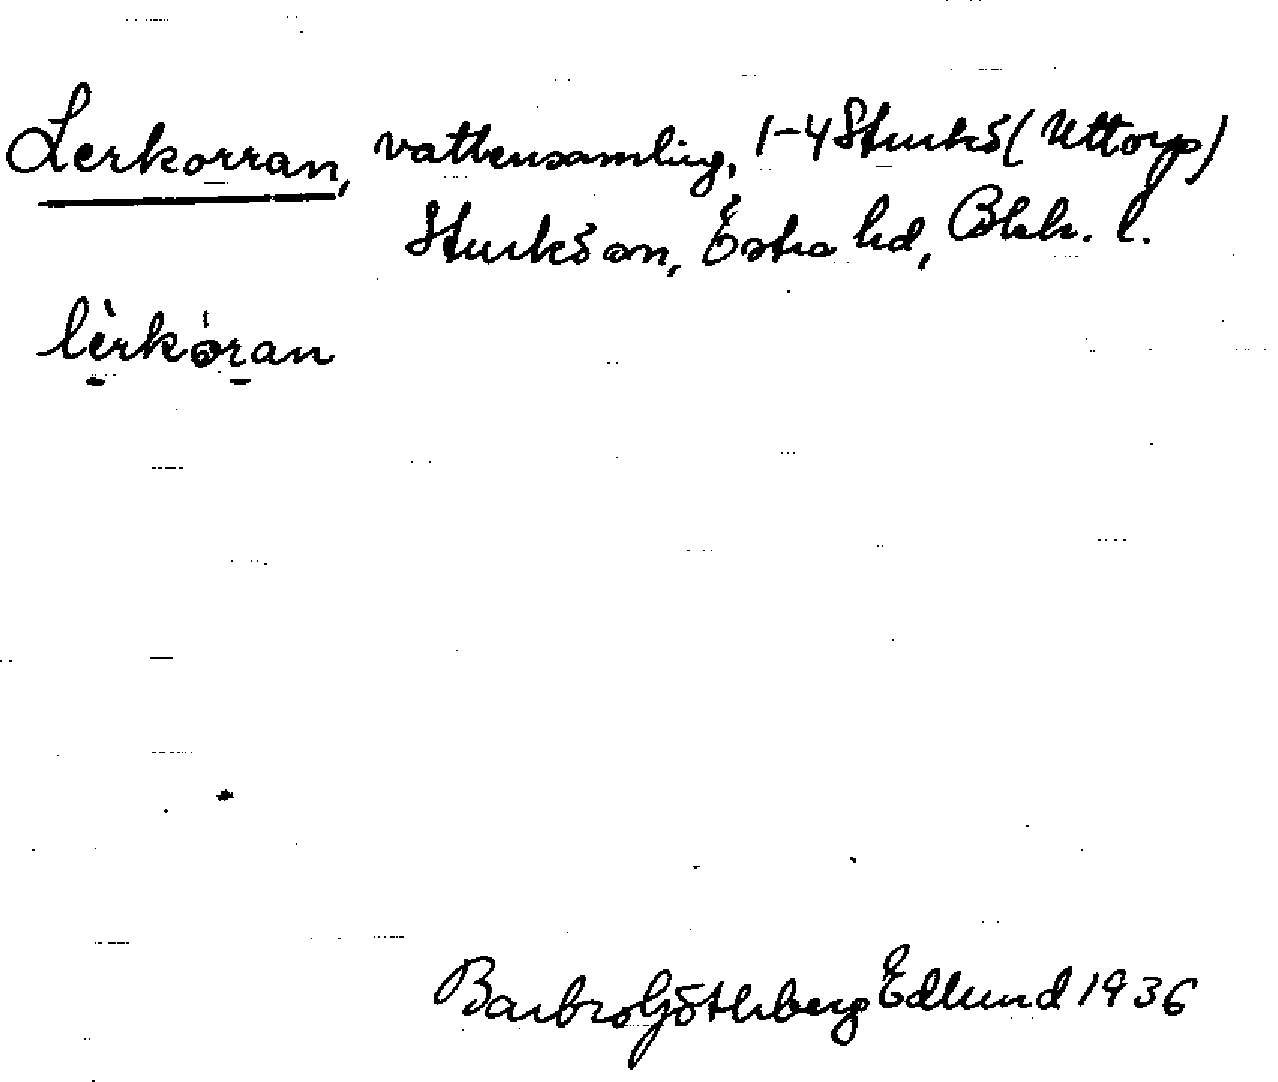 Lerkorran, vattensamling, 1-4 Sturkö (Uttorp)
Sturkö sn, Östra hd, Blek. l.
lèrkòran
Barbro Götherberg Edlund 1936